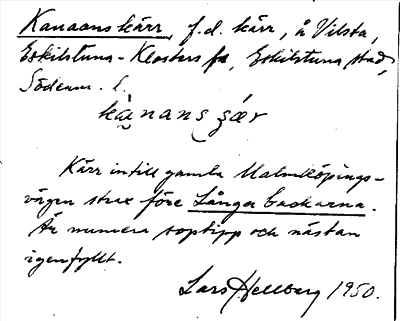 Kanaans kärr, f.d. kärr, å Vilsta,
Eskilstuna-Klosters fs, Eskilstuna stad,
Söderm. l.
kànans çær
Kärr intill gamla Malmköpings-
vägen strax före Långa backarna.
Är numera soptipp och nästan
igenfyllt.
Lars Hellberg 1950.